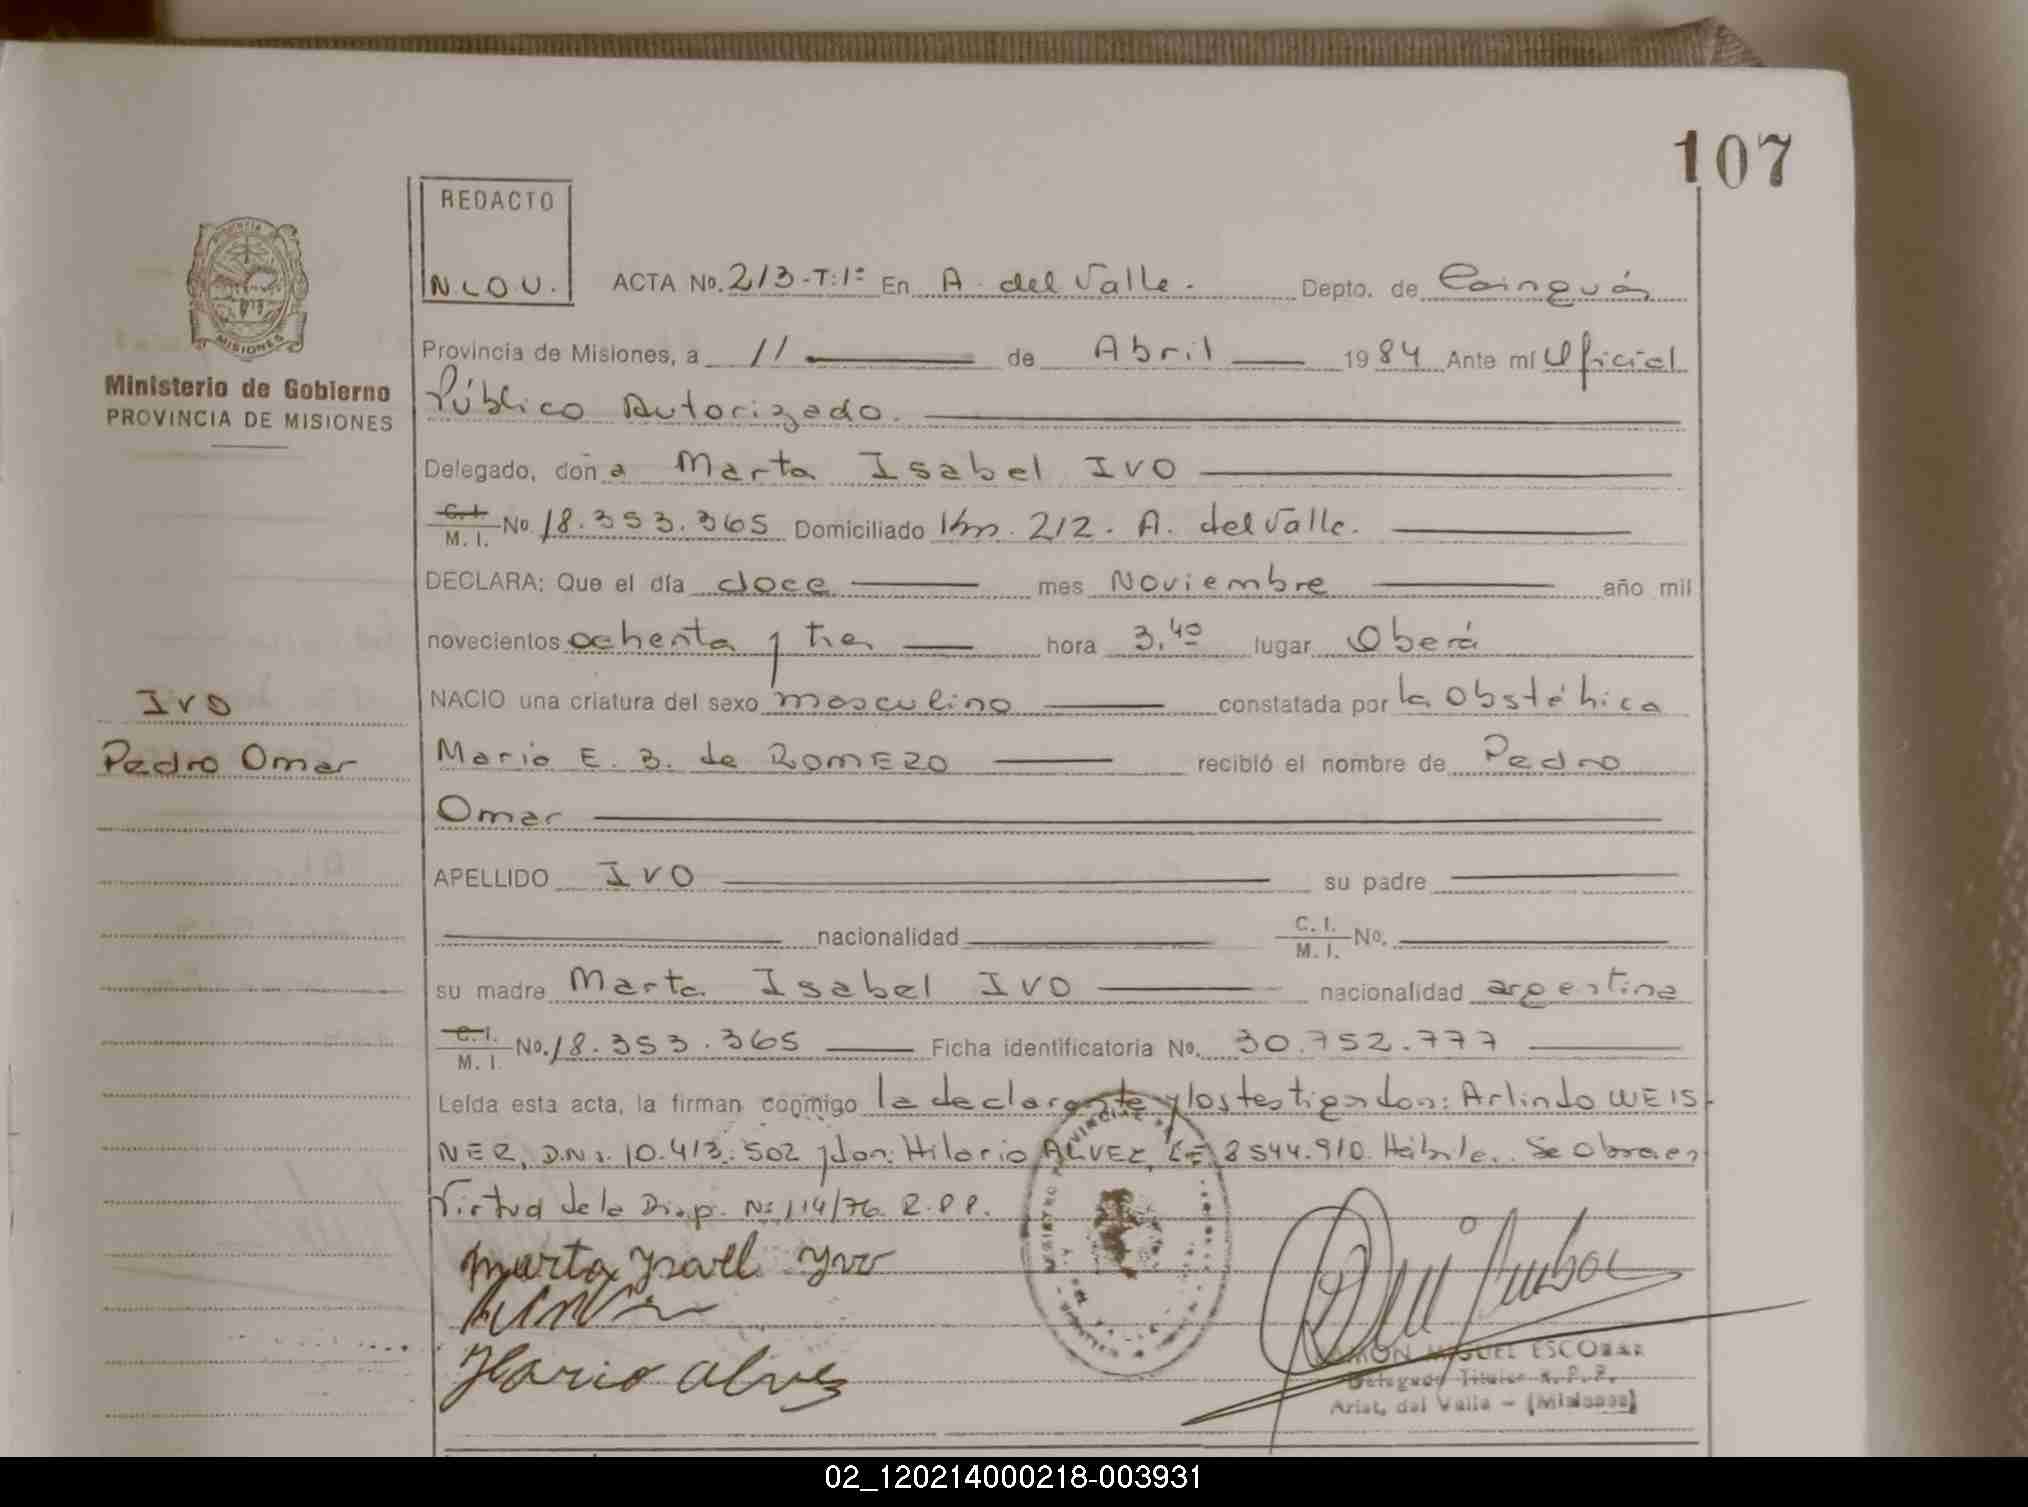 107
REDACTO
N.L.O.U.
MISIONES
Ministerio de Gobierno
PROVINCIA DE MISIONES
ACTA No. 213-T:1º En A. del Valle. Depto. de Cainguás
Provincia de Misiones, a 11 de Abril 1984 Ante mí Oficial
Público Autorizado.
Delegado, doña Marta Isabel IVO
C.I. M.I. No. 18.353.365 Domiciliado Km. 212. A. del Valle.
DECLARA: Que el día doce mes Noviembre año mil
novecientos ochenta y tres hora 3.40 lugar Oberá
NACIO una criatura del sexo masculino constatada por la Obstétrica
IVO
Pedro Omar
Maria E. B. de ROMERO recibió el nombre de Pedro
Omar
APELLIDO IVO su padre
nacionalidad C.I. M.I. No.
su madre Marta Isabel IVO nacionalidad argentina
C.I. M.I. No. 18.353.365 Ficha identificatoria No. 30.752.777
Leída esta acta, la firman conmigo la declarante y los testigos don: Arlindo WEIS-
NER, D.N.I. 10.413.502 y don: Hilario ALVEZ, LE 8544.910. Hábile. Se Obra en
Virtud de la Disp. Nº 114/76 R.P.P.
Marta Ysavel Yvo
Ilario Alves
RAMON MIGUEL ESCOBAR
Delegado Titular R.P.P.
Arist. del Valle - (Misiones)
02_120214000218-003931